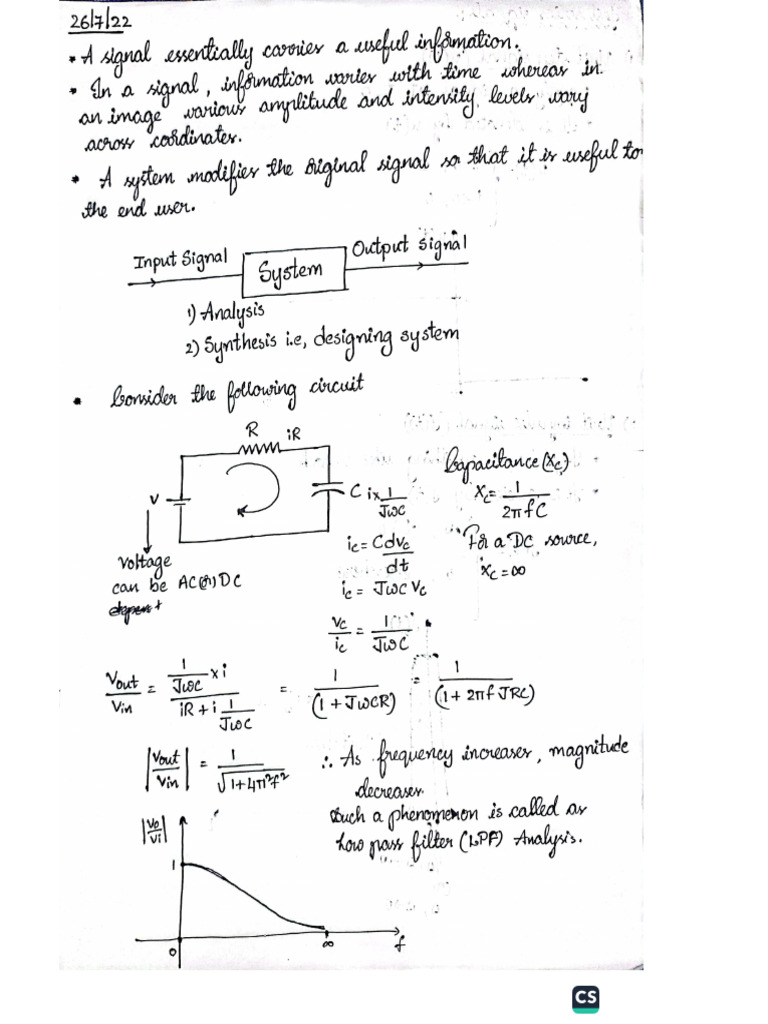 26/7/22
• A signal essentially carries a useful information.
• In a signal, information varies with time whereas in
an image various amplitude and intensity levels vary
across coordinates.
• A system modifies the original signal so that it is useful to
the end user.
Input Signal
System
Output Signal
1) Analysis
2) Synthesis i.e, designing system
• Consider the following circuit
R iR
V
C i x 1/JωC
Voltage
can be AC (or) DC
Capacitance (Xc)
Xc = 1/2πfC
For a DC source,
Xc = ∞
ic = C dvc/dt
ic = JωC Vc
Vc/ic = 1/JωC
Vout/Vin = (1/JωC x i)/(iR + i 1/JωC) = 1/(1 + JωCR) = 1/(1 + 2πf JRC)
|Vout/Vin| = 1/√1+4π²f²
∴ As frequency increases, magnitude
decreases.
Such a phenomenon is called as
Low pass filter (LPF) Analysis.
|Vo/Vi|
1
0
∞
f
CS